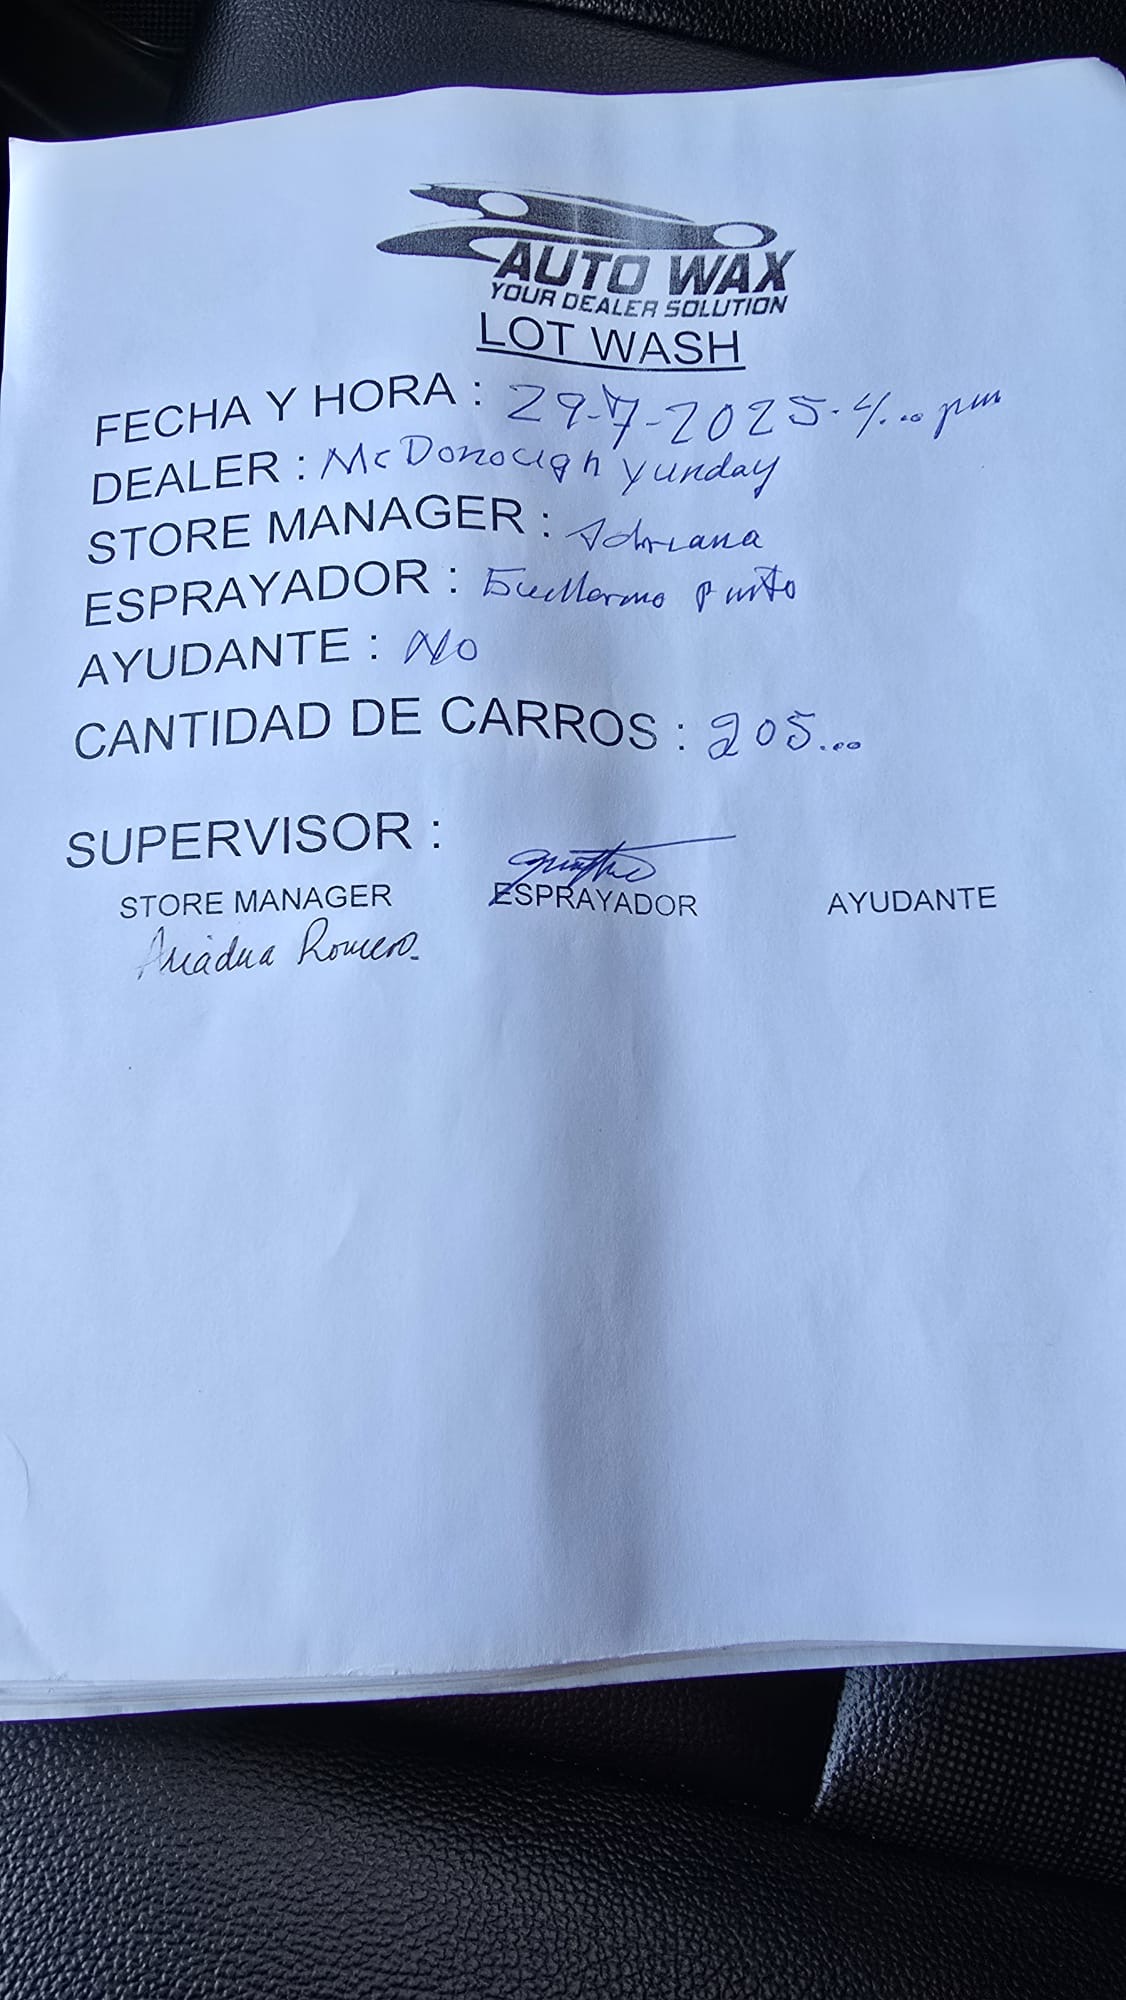 AUTO WAX
YOUR DEALER SOLUTION
LOT WASH
FECHA Y HORA : 29-7-2025-4.00 pm
DEALER : McDonough yunday
STORE MANAGER : Adriana
ESPRAYADOR : Guillermo Pinto
AYUDANTE : NO
CANTIDAD DE CARROS : 205...
SUPERVISOR :
STORE MANAGER ESPRAYADOR AYUDANTE
Ariadna Romero.